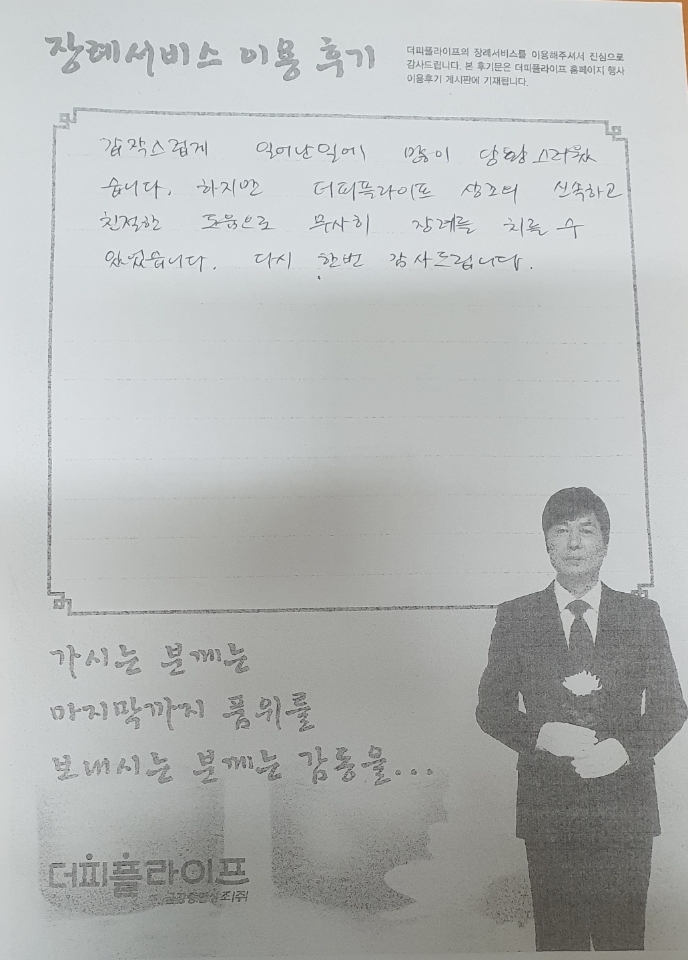 장례서비스 이용 후기
더피플라이프의 장례서비스를 이용해주셔서 진심으로
감사드립니다. 본 후기문은 더피플라이프 홈페이지 행사
이용후기 게시판에 기재됩니다.
갑작스럽게 일어난일에 많이 당황스러웠
습니다. 하지만 더피플라이프 상조의 신속하고
친절한 도움으로 무사히 장례를 치를 수
있었습니다. 다시 한번 감사드립니다.
가시는 분께는
마지막까지 품위를
보내시는 분께는 감동을...
더피플라이프